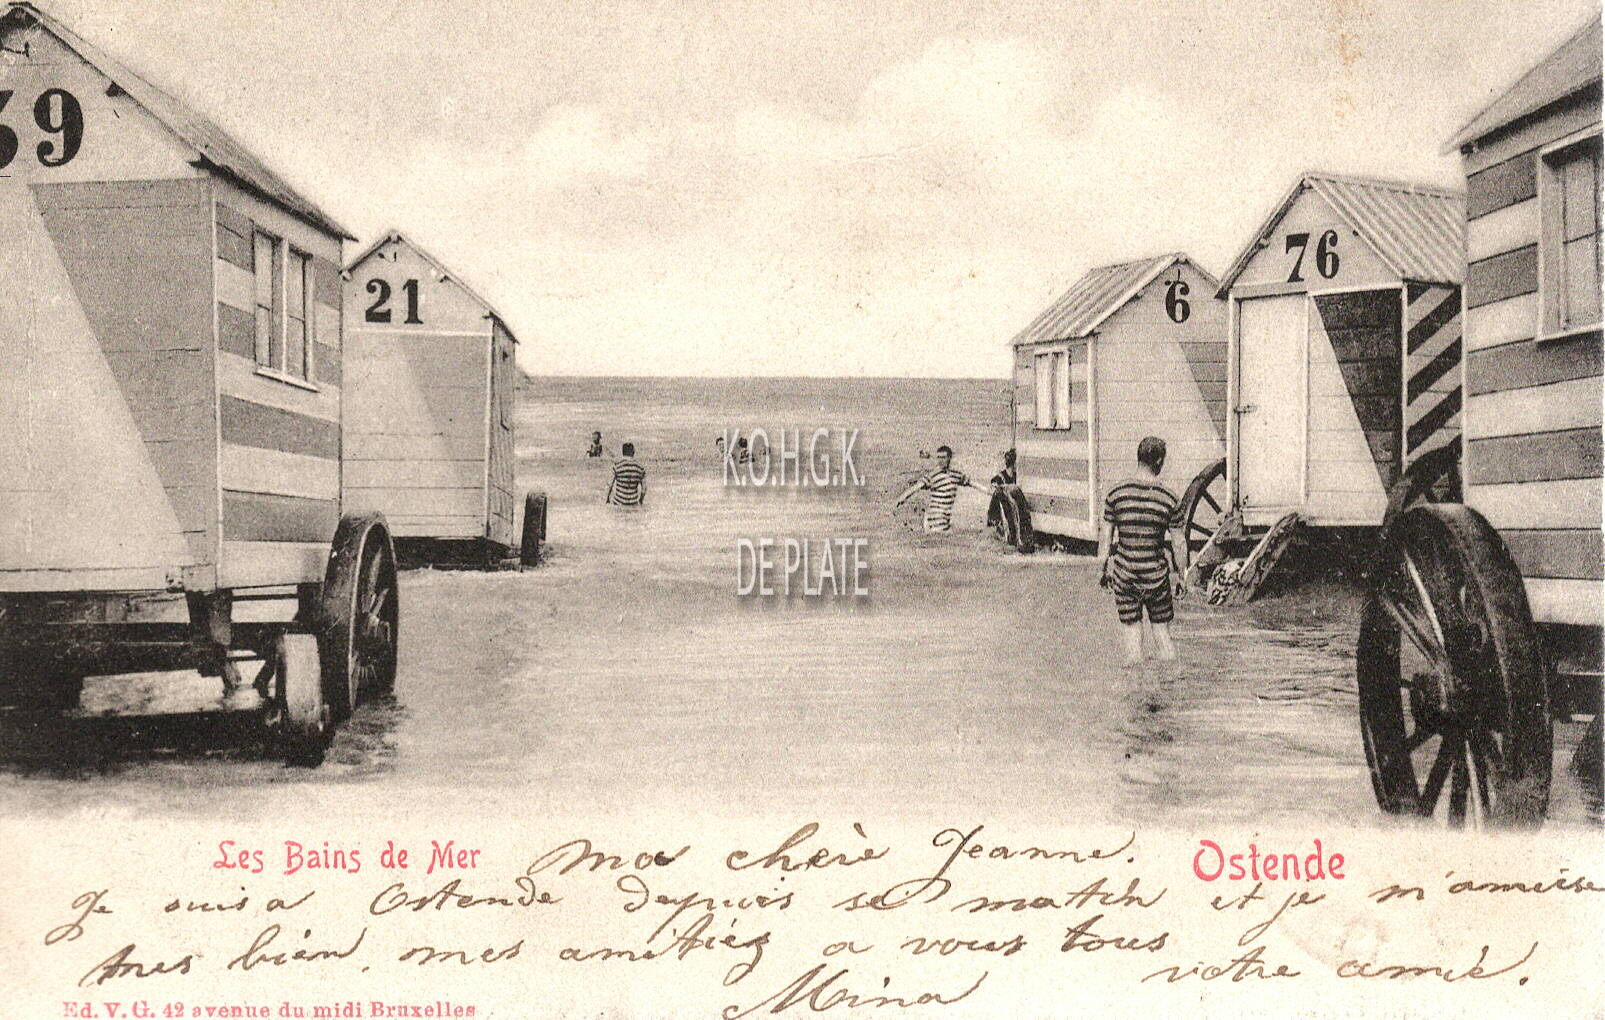 39
21
6
76
K.O.H.G.K.
DE PLATE
Les Bains de Mer
Ostende
ma chère Jeanne.
Je suis a Ostende depuis se match et je m'amuise
tres bien, mes amitiéz a vous tous
votre amié.
Mina
Ed. V. G. 42 avenue du midi Bruxelles